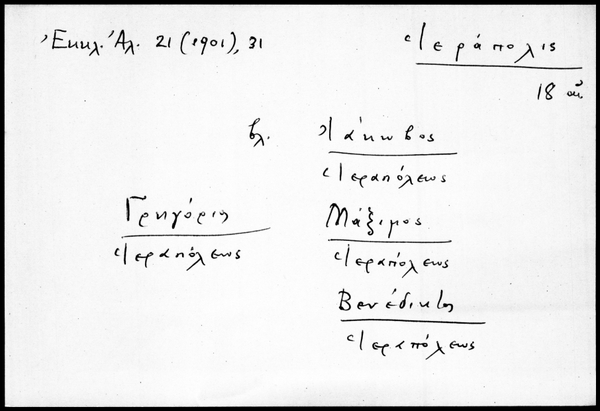 Ἐκκλ. Ἀλ. 21 (1901), 31
Ἱεράπολις
18 αἰ.
βλ. Ἰάκωβος
Ἱεραπόλεως
Γρηγόριος
Ἱεραπόλεως
Μάξιμος
Ἱεραπόλεως
Βενέδικτος
Ἱεραπόλεως